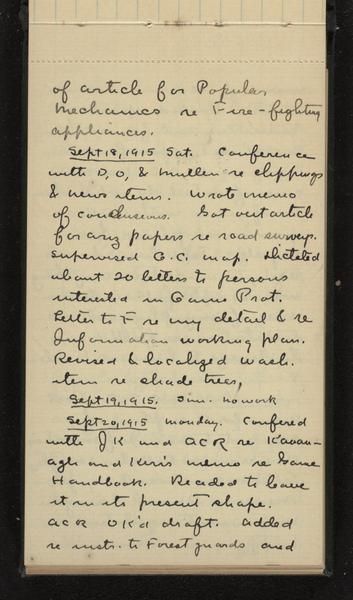 of article for Popular
Mechanics re Fire-fighting
appliances.
Sept 18, 1915 Sat. Conference
with D, O, & Mullen re clippings
& news items. Wrote memo
of conclusions. Got out article
for ariz papers re road surveys.
Supervised G.C. map. Dictated
about 20 letters to persons
interested in Game Prot.
Letter to F re my detail & re
Information working plan.
Revised & localized Wash.
item re shade trees,
Sept 19, 1915. Sun. no work
Sept 20, 1915 Monday. Confered
with JK and ACR re Kavan-
agh and Kerr's memo re Game
Handbook. Decided to leave
it in its present shape.
ACR OK'd draft. Added
re instr. to Forest guards and